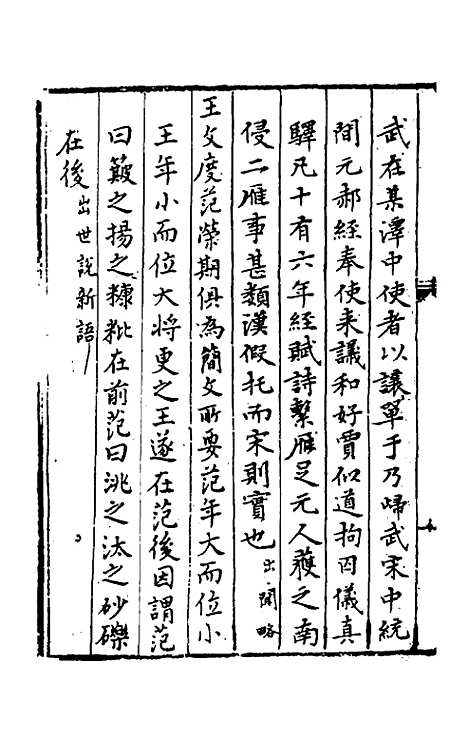 武在某澤中使者以讓單于乃歸武宋中統
間元郝經奉使来議和好賈似道拘囚儀真
驛凡十有六年經賦詩繫雁足元人獲之南
侵二雁事甚類漢假托而宋則實也出聞略
王文度范榮期俱為簡文所要范年大而位小
王年小而位大將更之王遂在范後因謂范
曰簸之揚之糠粃在前范曰洮之汰之砂礫
在後出世說新語